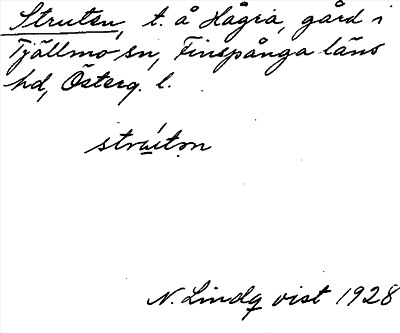 Struten, t. å Hågra, gård i
Tjällmo sn, Finspånga läns
hd, Österg. l.
N. Lindqvist 1928